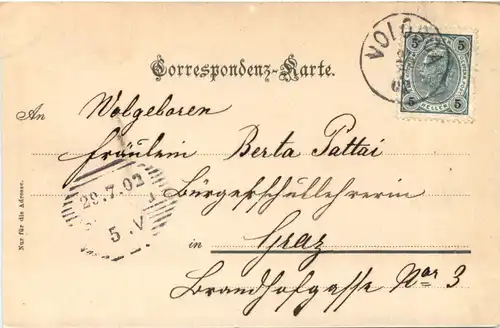 Correspondenz-Karte.
An Wolgeboren
Fräulein Berta Pattai
Bürgerschullehrerin
in Graz
Brandhofgasse Nor 3
Nur für die Adresse.
29.7.02
5.V
5 5
HELLER
5 5